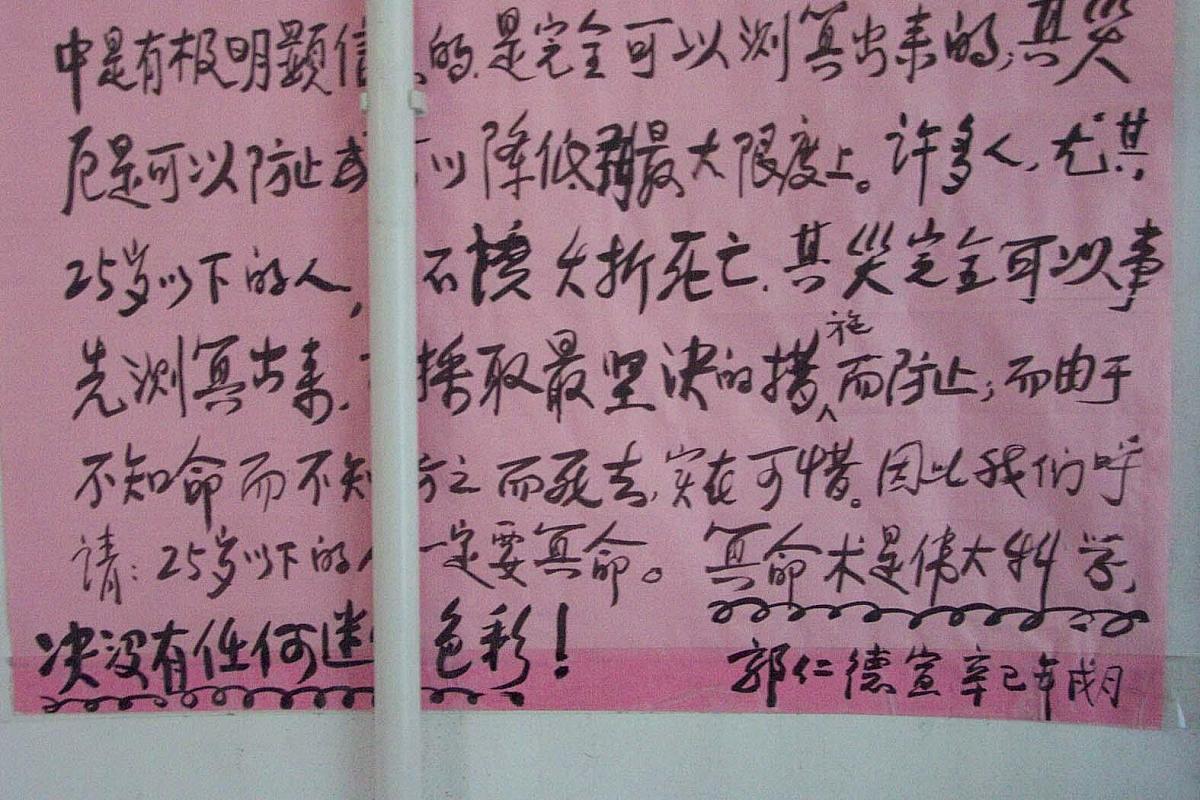 中是有极明显信 的.是完全可以测算出来的;其灾
厄是可以防止或 以降低到最大限度上。许多人,尤其,
25岁以下的人, 不慎夭折死亡.其灾完全可以事
先测算出来. 採取最坚决的措施而防止;而由于
不知命而不知 之而死去,实在可惜。因此我们呼
请:25岁以下的人一定要算命。算命术是伟大科学,
决没有任何迷 色彩!
郭仁德宣 辛巳年戌月